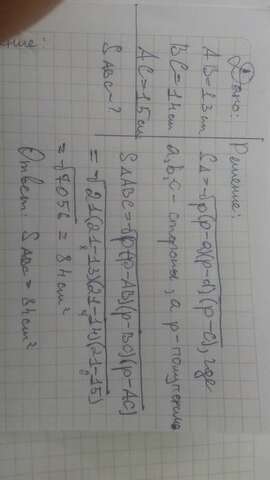 Дано:
AB=13см
BC=14см
AC=15см
S ABC-?
Решение:
S∆=√p(p-a)(p-b)(p-c), где
a,b,c - стороны, а p-полупериметр
S∆ABC=√p(p-AB)(p-BC)(p-AC)
=√21(21-13)(21-14)(21-15)
=√7056 = 84см²
Ответ: S ABC = 84см²
ние: